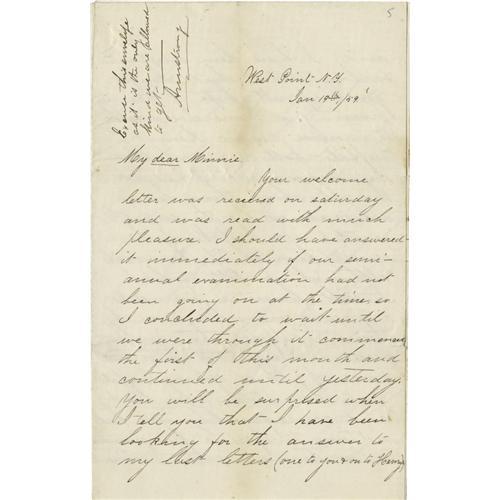 5
Excuse this envelope
as it is the only
kind we are allowed
to get
Armstrong
West Point N.Y.
Jan 18th/59
My dear Minnie
Your welcome
letter was received on saturday
and was read with much
pleasure. I should have answered
it immediately if our semi-
annual examination had not
been going on at the time, so
I concluded to wait until
we were through it commenced
the first of this month and
continued until yesterday.
You will be surprised when
I tell you that I have been
looking for the answer to
my last letters (one to you & on to Henry)